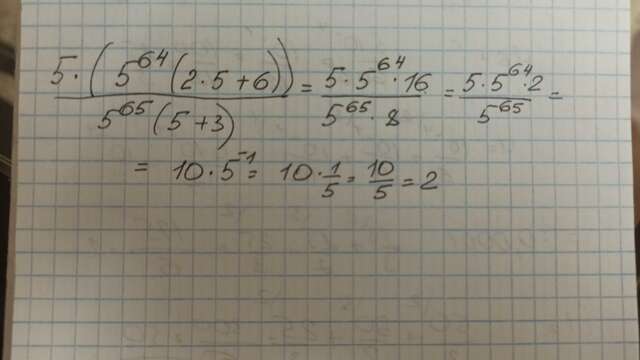 5·(5^64(2·5+6))/5^65(5+3) = 5·5^64·16/5^65·8 = 5·5^64·2/5^65 =
= 10·5^-1 = 10·1/5 = 10/5 = 2